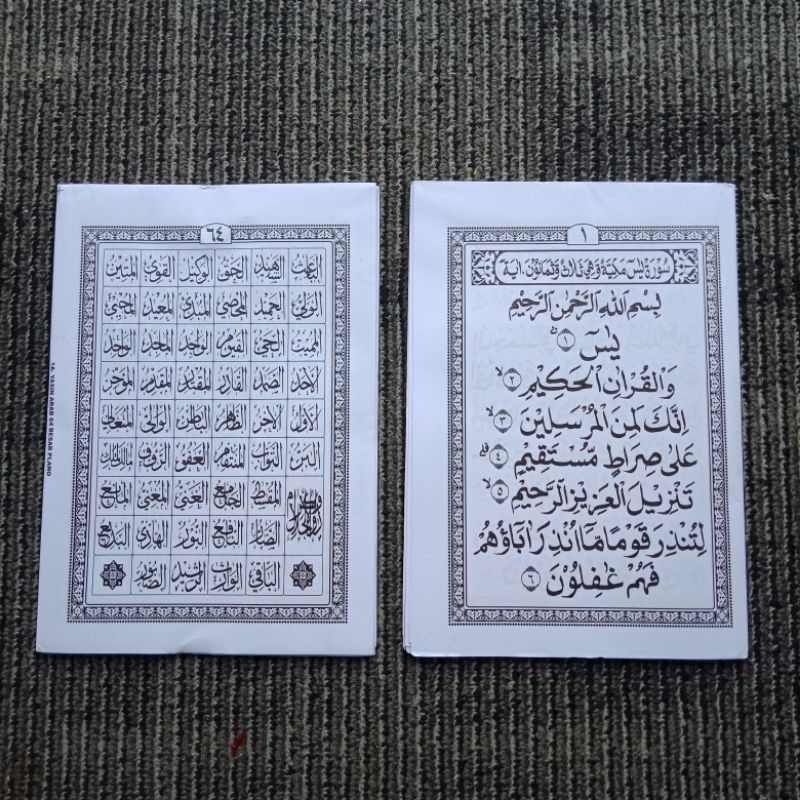 ١
سورة يس مكية وهي ثلاث وثمانون اية
بِسْمِ اللهِ الرَّحْمٰنِ الرَّحِيْمِ
يٰسۤ ۚ ١
وَالْقُرْاٰنِ الْحَكِيْمِۙ ٢
اِنَّكَ لَمِنَ الْمُرْسَلِيْنَۙ ٣
عَلٰى صِرَاطٍ مُّسْتَقِيْمٍۗ ٤
تَنْزِيْلَ الْعَزِيْزِ الرَّحِيْمِۙ ٥
لِتُنْذِرَ قَوْمًا مَّآ اُنْذِرَ اٰبَاۤؤُهُمْ
فَهُمْ غٰفِلُوْنَ ٦
٦٤
الباعث الشهيد الحق الوكيل القوي المتين
الولي الحميد المحصي المبدئ المعيد المحيي
المميت الحي القيوم الواجد الماجد الواحد
الاحد الصمد القادر المقتدر المقدم المؤخر
الاول الاخر الظاهر الباطن الوالي المتعالي
البر التواب المنتقم العفو الرؤف مالك الملك
ذوالجلال والاكرام المقسط الجامع الغني المغني المانع
الضار النافع النور الهادي البديع
الباقي الوارث الرشيد الصبور
YASIN ARAB 64 BESAR PLANO